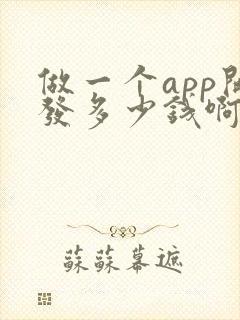 做一个app開
發多少錢啊
蘇蘇幕遮